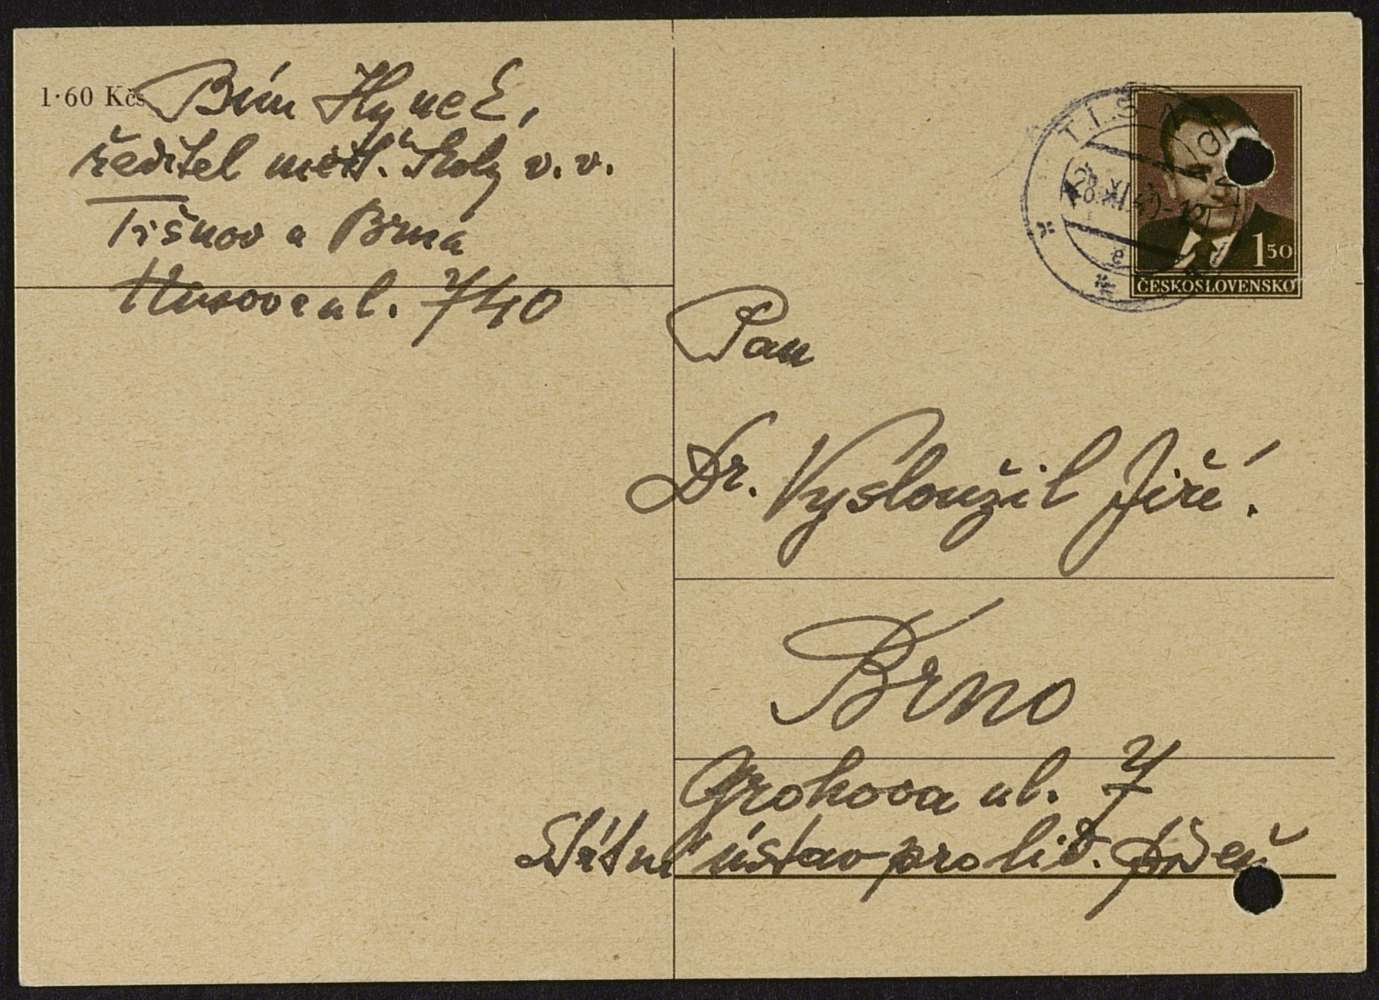 1·60 Kčs
Bím Hynek,
ředitel měšť. školy v. v.
Tišnov u Brna
Husova ul. 740
TIŠNOV
28.XI.49-12
150
ČESKOSLOVENSKO
Pan
Dr. Vysloužil Jiří.
Brno
Grohova ul. 7
Státní ústav pro lid. píseň